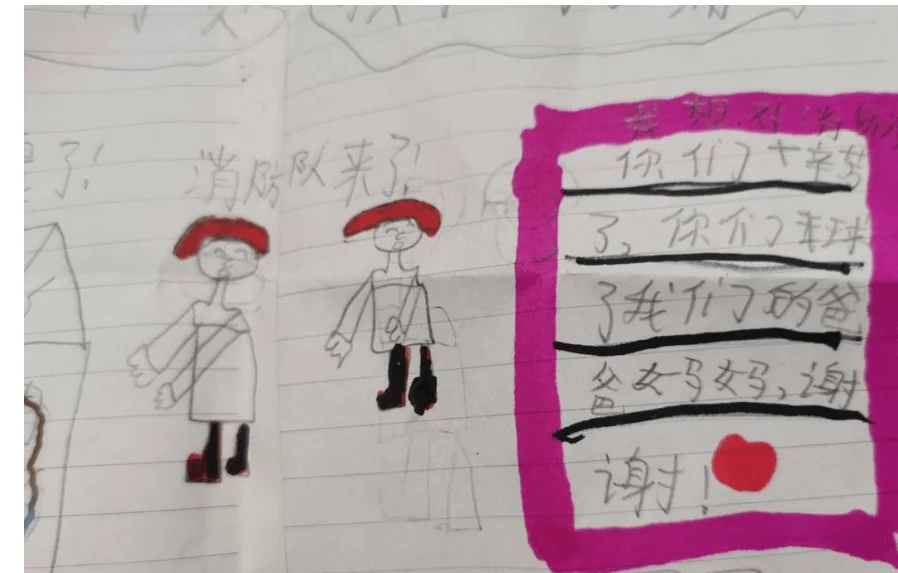 了!
消防队来了!
我想对消防
你们辛苦
了,你们
了我们的爸
爸妈妈,谢
谢!